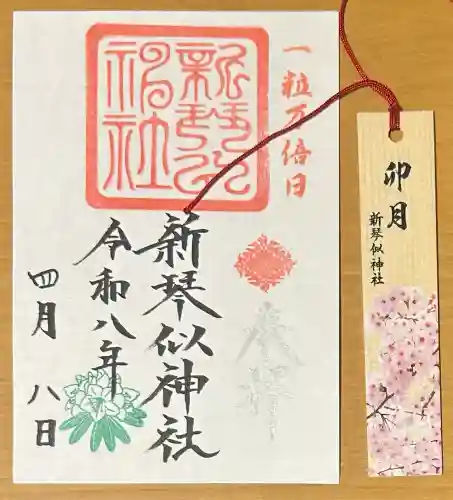 一粒万倍日
新琴似神社
奉拝
新琴似神社
令和八年
四月八日
卯月
新琴似神社